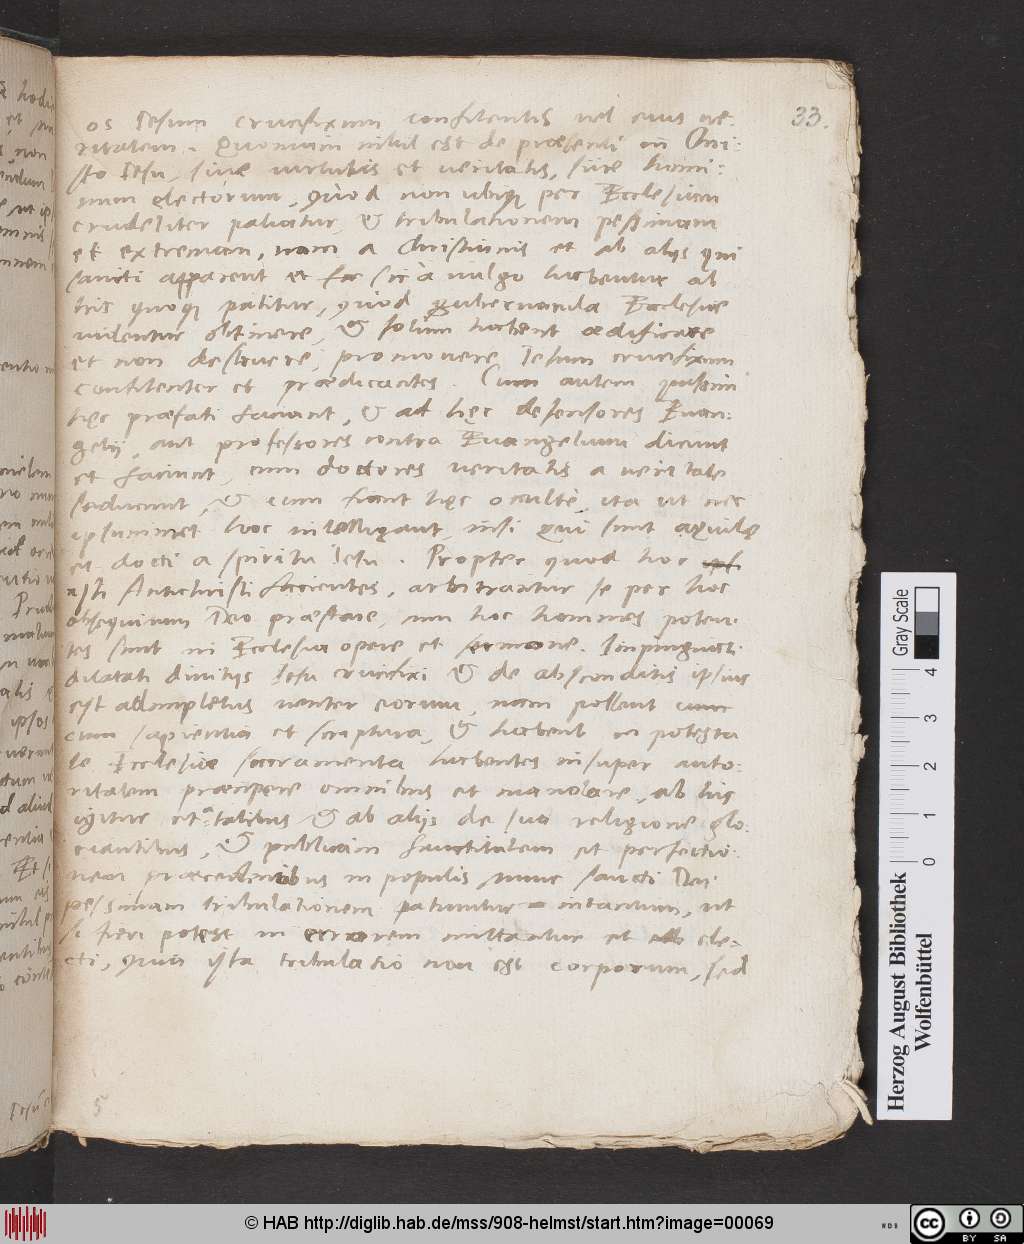 33.
os Iesum crucifixum confitentis vel eius ve-
ritatem. Quoniam nihil est de præsenti in Chri:
sto Iesu, siue virtutis et veritatis, siue homi:
num electorum, quod non ubique per Ecclesiam
crudeliter patiatur, & tribulationem pessimam
et extremam, nam a Christianis et ab alijs qui
sancti apparent et sic à vulgo habentur ab
his quoque patitur, quod gubernacula Ecclesiæ
videntur obtinere, & solum habent ædificare
et non destruere, promovere Iesum crucifixum
confitentes et prædicantes. Cum autem quidem
hęc præfati faciant, & ad hęc defensores Euan:
gelij, aut professores contra Euangelium dicunt
et faciunt, cum doctores veritatis a veritate
seducunt, & cum fiant hęc occultè, ita ut nec
ipsummet hoc intelligant, nisi qui sunt aquilę
et docti a spiritu Iesu. Propter quod hoc
isti Antichristi facientes, arbitrantur se per hoc
obsequium Deo præstare, cum hoc homines poten-
tes sunt in Ecclesia opere et sermone. Impinguati
dilatati divitijs Iesu crucifixi & de absconditis ipsius
est adimpletus venter eorum, nam pollent
cum sapientia et scriptura, & habent in potesta
te Ecclesiæ sacramenta habentes insuper auto:
ritatem præcipere omnibus et mandare, ab his
igitur et a talibus & ab alijs de sua religione glo:
riantibus, & publicam sanctitatem et perfectio:
nem præcedentibus in populis nunc sancti Dei
pessimam tribulationem patiuntur intantum, ut
si fieri potest in errorem mittantur et ele-
cti, quia ista tribulatio non est corporum, sed
5
Gray Scale
0 1 2 3 4
Herzog August Bibliothek
Wolfenbüttel
© HAB http://diglib.hab.de/mss/908-helmst/start.htm?image=00069
WDB
cc BY SA